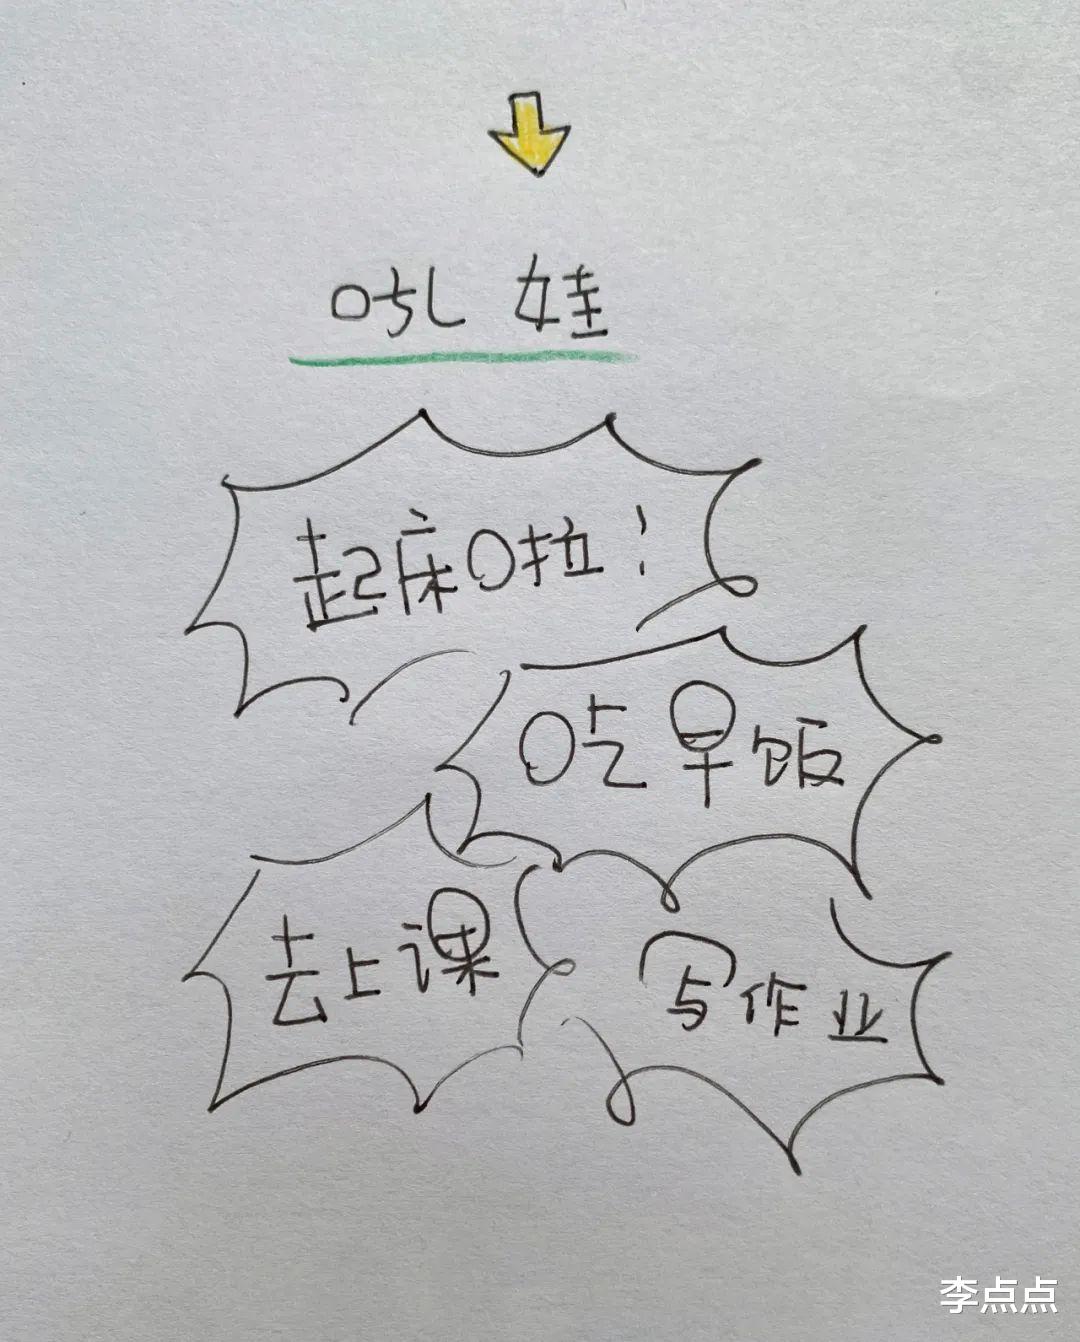 吼娃
起床啦！
吃早饭
去上课
写作业
李点点